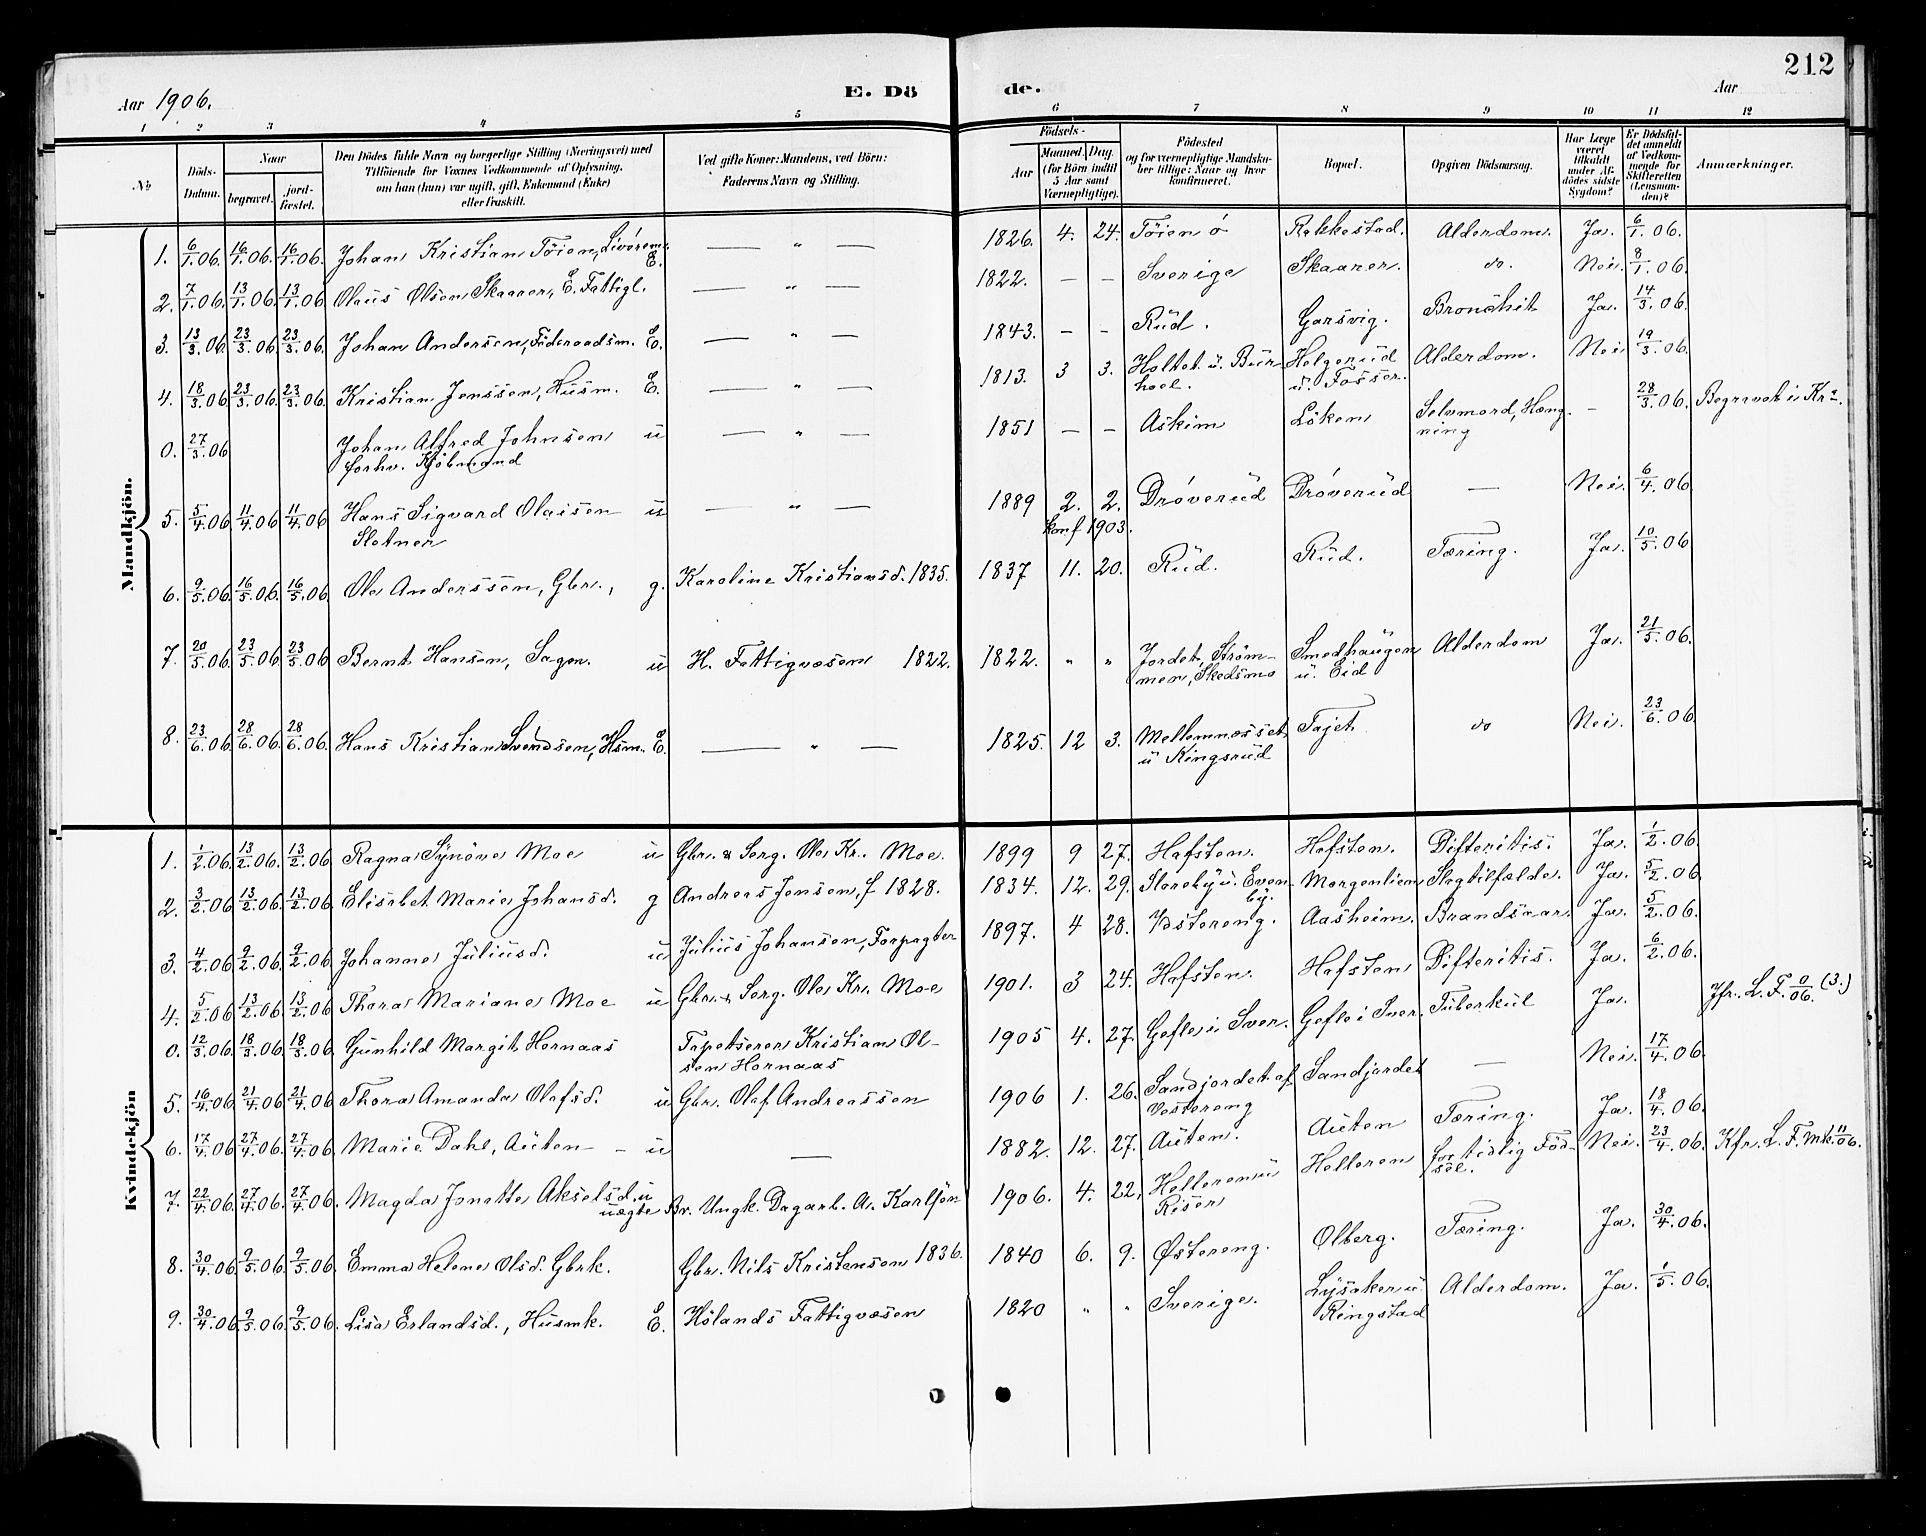 212
Aar 1906.
E. Dö
de.
Aar
1 2 3 4 5 6 7 8 9 10 11 12
№
Döds-Datum.
Naar
begravet.
jord-fæstet.
Den Dödes fulde Navn og borgerlige Stilling (Næringsvei) med
Tilföiende for Voxnes Vedkommende af Oplysning,
om han (hun) var ugift, gift, Enkemand (Enke)
eller fraskilt.
Ved gifte Koner: Mandens, ved Börn:
Faderens Navn og Stilling.
Födsels-
Aar
Maaned. Dag.
(for Börn indtil
5 Aar samt
Værnepligtige).
Födested
og for værnepligtige Mandska-
ber tillige: Naar og hvor
konfirmeret.
Bopæl.
Opgiven Dödsaarsag.
Har Læge
været
tilkaldt
under Af-
dödes sidste
Sygdom?
Er Dödsfal-
det anmeldt
af Vedkom-
mende for
Skifteretten
(Lensman-
den)?
Anmærkninger.
Mandkjön.
1. 6/1.06. 16/1.06. 16/1.06. Johan Kristian Töien, Livörem. E. — " — 1826. 4. 24. Töien ö Rakkestad. Alderdom. Ja. 6/1.06.
2. 7/1.06. 13/1.06. 13/1.06 Olaus Olsen Skaaren, E. Fattigl. — " — 1822. — — Sverige Skaaren. do. Nei. 8/1.06
3. 13/3.06. 23/3.06. 23/3.06. Johan Andersen, Föderaadsm. E. — " — 1843. — — Rud. Garsvig. Bronchit Ja. 14/3.06
4. 18/3.06 23/3.06. 23/3.06. Kristian Jenssen, Husm. E. — " — 1813. 3 3. Holtet u. Bur-
hoel. Helgerud
u. Fosser. Alderdom. Nei 19/3.06.
0. 27/3.06 Johan Alfred Johnsen u
forhv. Kjöbmand — " — 1851 — — Askim Löken Selvmord, Hæng-
ning — 28/3.06. Begravet i Kra.
5. 5/4.06 11/4.06 11/4.06 Hans Sigvard Olaisen u
Sletner — " — 1889 2. 2.
konf 1903. Dröverud Dröverud — Nei. 6/4.06
6. 9/5.06. 16/5.06. 16/5.06. Ole Anderssen, Gbr., g. Karoline Kristiansd. 1835. 1837 11. 20. Rud. Rud. Tæring. Ja. 10/5.06
7. 20/5.06. 23/5.06 23/5.06 Bernt Hansen, Sagen. u H. Fattigvæsen 1822. 1822. " " Jordet, Ström-
men, Skedsmo Smedhaugen
u. Eid Alderdom Ja. 21/5.06.
8. 23/6.06. 28/6.06. 28/6.06. Hans Kristian Svendsen, Hsm. E. — " — 1825. 12 3. Mellemnæsset
u Kingsrud Tajet do Nei. 23/6.06.
Kvindekjön
1. 1/2.06. 13/2.06. 13/2.06. Ragna Synöve Moe u Gbr. & Serg. Ole Kr. Moe. 1899 9 27. Hafsten. Hafsten. Difteritis. Ja. 1/2.06.
2. 3/2.06 13/2.06. 13/2.06. Elisabet Marie Johansd. g Andreas Jensen, f. 1828. 1834. 12. 29. Storeby u. Even-
by. Morgenlien Slagtilfælde. Ja. 5/2.06
3. 4/2.06 9/2.06. 9/2.06. Johanne Juliusd. u Julius Johansen, Forpagter 1897. 4 28. Vestereng. Aasheim. Brandsaar. Ja. 5/2.06.
4. 5/2.06 13/2.06. 13/2.06. Thora Mariane Moe u Gbr. & Serg. Ole Kr. Moe 1901. 3 24. Hafsten. Hafsten Difteritis. Ja. 6/2.06.
0. 12/3.06. 18/3.06. 18/3.06. Gunhild Margit Hornaas Tapetserer Kristian Ol-
sen Hornaas 1905 4. 27. Gefle i Sver. Gefle i Sver. Tuberkul Ja. Jfr. L. F. 0/06. (3.)
5. 16/4.06. 21/4.06 21/4.06 Thora Amanda Olafsd. u Gbr. Olaf Andreassen 1906 1. 26. Sandjordet af
Vestereng Sandjordet — Nei. 17/4.06.
6. 17/4.06 27/4.06. 27/4.06. Marie Dahl, Auten — u — 1882. 12. 27. Auten. Auten Tæring. Ja. 18/4.06.
7. 22/4.06. 27/4.06 27/4.06. Magda Jonette Akselsd. u
uægte Br. Ungk. Dagarb. A. Karlsön 1906. 4. 22. Helleren u
Risen Helleren for tidlig Föd-
sel. Nei. 23/4.06. Kfr. L. F. Mk. 11/06.
8. 30/4.06. 9/5.06. 9/5.06. Emma Helene Olsd. Gbrk. Gbr. Nils Kristensen 1836. 1840 6. 9. Østereng. Olberg. Tæring. Ja. 30/4.06.
9. 30/4.06 9/5.06 9/5.06. Lisa Erlandsd., Husmk. E. Hölands Fattigvæsen 1820 " " Sverige. Lysaker u
Ringstad Alderdom. Ja. 1/5.06.